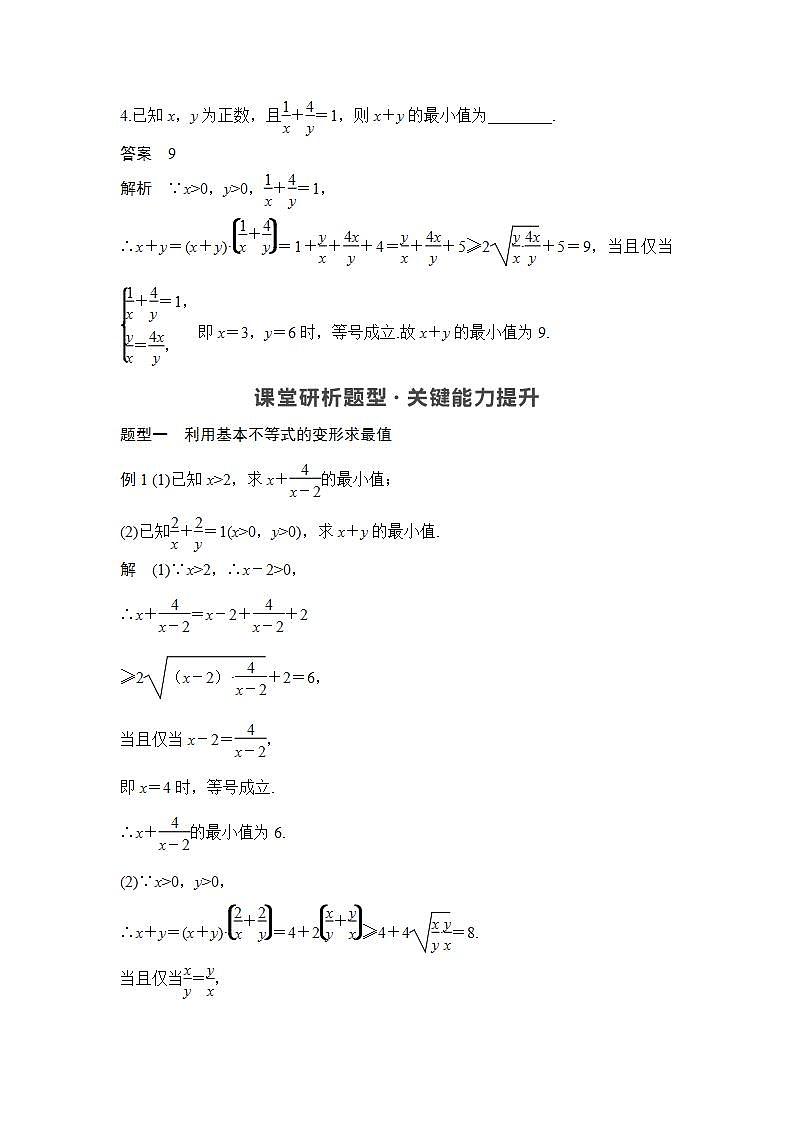 4.已知 x，y 为正数，且1/x＋4/y＝1，则 x＋y 的最小值为________.
答案　9
解析　∵x>0，y>0，1/x＋4/y＝1，
∴x＋y＝(x＋y)·(1/x＋4/y)＝1＋y/x＋4x/y＋4＝y/x＋4x/y＋5≥2√(y/x·4x/y)＋5＝9，当且仅当
{1/x＋4/y＝1，y/x＝4x/y，　即 x＝3，y＝6 时，等号成立.故 x＋y 的最小值为 9.
课堂研析题型·关键能力提升
题型一　利用基本不等式的变形求最值
例 1 (1)已知 x>2，求 x＋4/(x－2)的最小值；
(2)已知2/x＋2/y＝1(x>0，y>0)，求 x＋y 的最小值.
解　(1)∵x>2，∴x－2>0，
∴x＋4/(x－2)＝x－2＋4/(x－2)＋2
≥2√(（x－2）·4/(x－2))＋2＝6，
当且仅当 x－2＝4/(x－2)，
即 x＝4 时，等号成立.
∴x＋4/(x－2)的最小值为 6.
(2)∵x>0，y>0，
∴x＋y＝(x＋y)·(2/x＋2/y)＝4＋2(x/y＋y/x)≥4＋4√(x/y·y/x)＝8.
当且仅当x/y＝y/x，